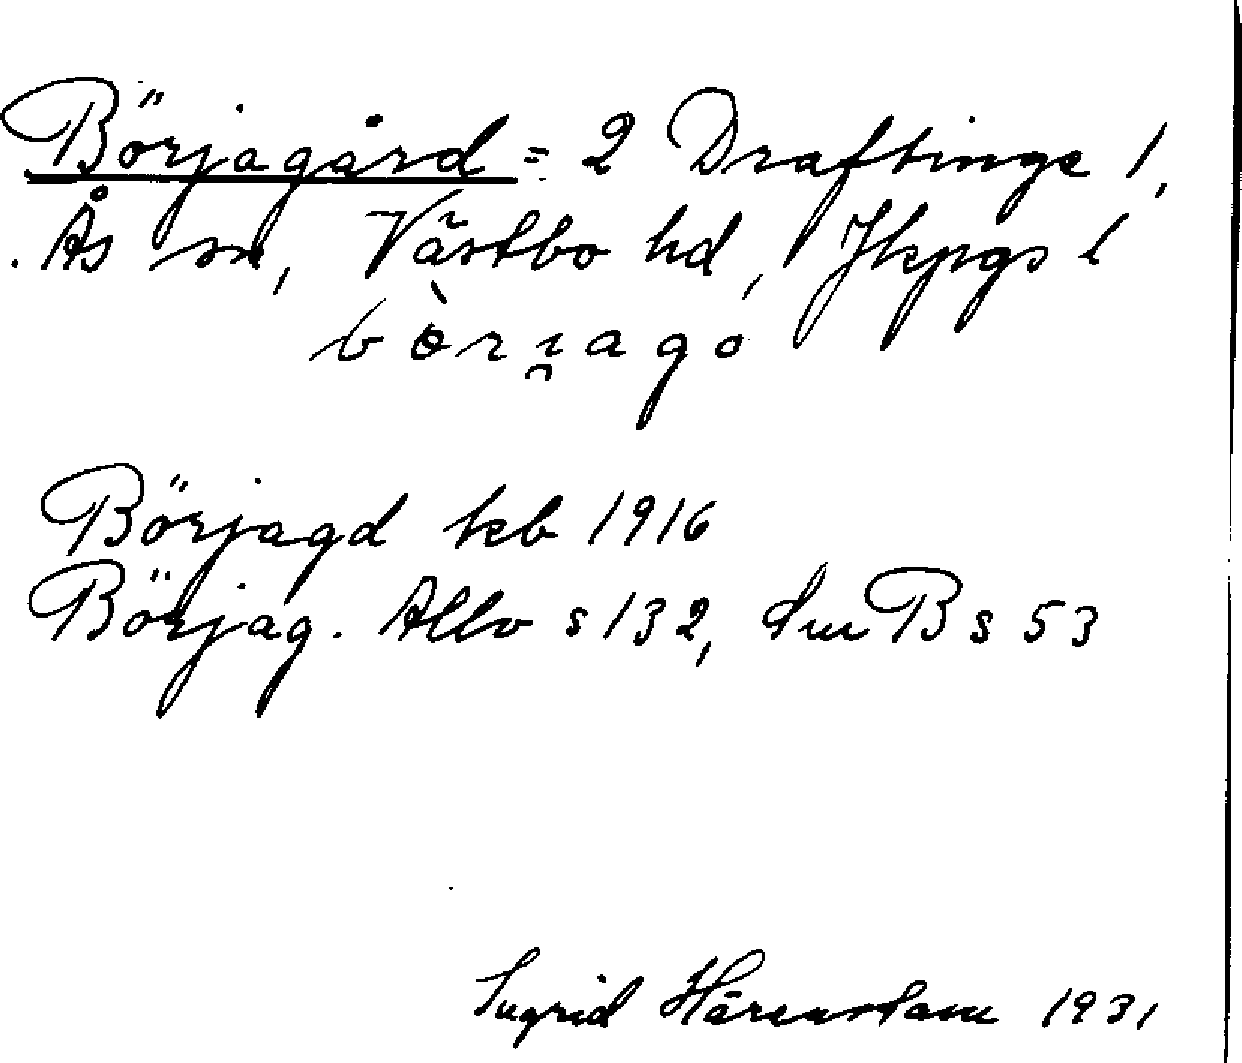 Börjagård = 2 Draftinge 1,
Ås sn, Västbo hd, Jkpgs l
bòri̯ago
Börjagd kb 1916
Börjag. Allbo s 132, s 53
Ingrid Härenstam 1931